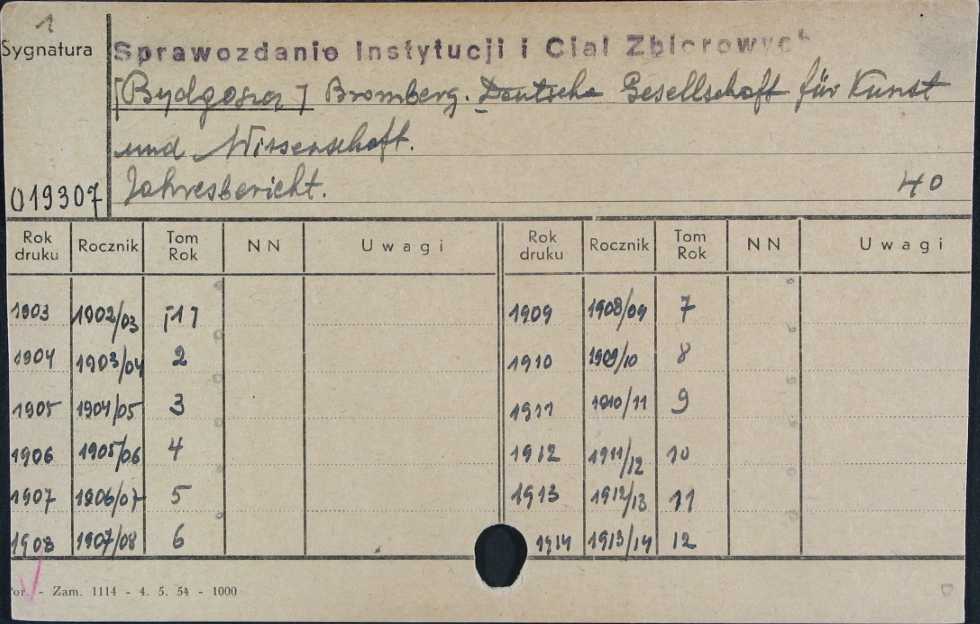 1
Sygnatura
Sprawozdanie Instytucji i Ciał Zbiorowych
[Bydgoszcz] Bromberg. Deutsche Gesellschaft für Kunst
und Wissenschaft.
019307 Jahresbericht. 40
Rok druku Rocznik Tom Rok NN Uwagi Rok druku Rocznik Tom Rok NN Uwagi
1903 1902/03 [1] 1909 1908/09 7
1904 1903/04 2 1910 1909/10 8
1905 1904/05 3 1911 1910/11 9
1906 1905/06 4 1912 1911/12 10
1907 1906/07 5 1913 1912/13 11
1908 1907/08 6 1914 1913/14 12
- Zam. 1114 - 4. 5. 54 - 1000